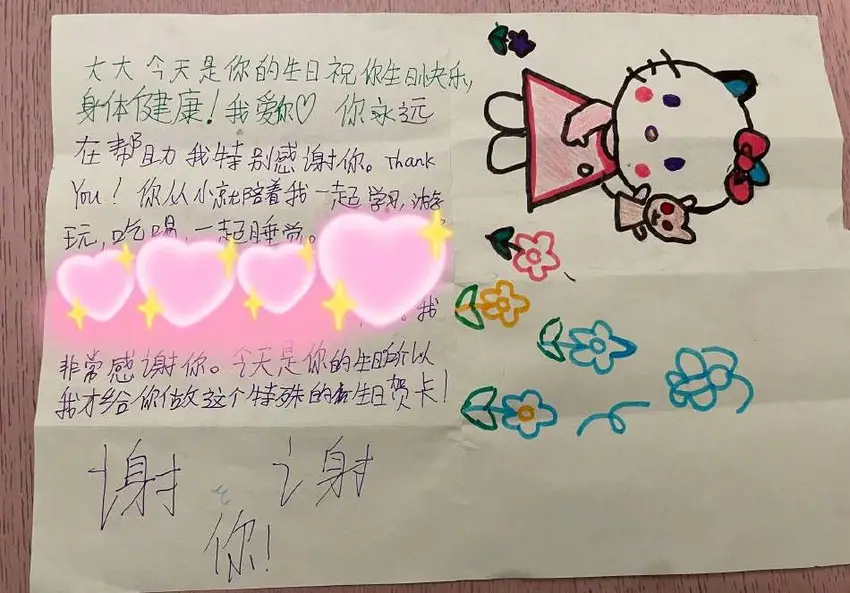 大大 今天是你的生日祝你生日快乐,
身体健康!我爱你♡ 你永远
在帮助我特别感谢你。Thank
You!你从小就陪着我一起学习,游
玩,吃喝,一起睡觉。
。我
非常感谢你。今天是你的生日所以
我才给你做这个特殊的生日贺卡!
谢 谢
你!